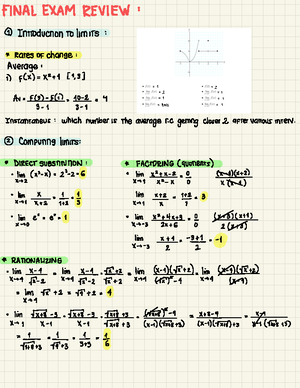 FINAL EXAM REVIEW :
① Introduction to limits :
* Rates of change :
Average :
i) f(x) = x²+1 [1,3]
Av = f(3) - f(1) / 3-1 = 10-2 / 3-1 = 4
Instantaneous : which number is the average ROC getting closer 2 after various interv.
② Computing limits:
* DIRECT SUBSTITUTION :
• lim x→2 (x³-x) = 2³-2 = 6
• lim x→1 x / x+2 = 1 / 1+2 = 1/3
• lim x→0 eˣ = e⁰ = 1
* FACTORING (quotients)
• lim x→1 x²+x-2 / x²-x = 0/0 (x-1)(x+2) / x(x-1)
lim x→1 x+2 / x = 1+2 / 1 = 3
• lim x→-3 x²+4x+3 / 2x+6 = 0/0 (x+3)(x+1) / 2(x+3)
lim x→-3 x+1 / 2 = -3+1 / 2 = -1
* RATIONALIZING
• lim x→4 x-4 / √x-2 = lim x→4 x-4 / √x-2 · √x+2 / √x+2 = lim x→4 (x-4)(√x+2) / (√x)²-4 = lim x→4 (x-4)(√x+2) / (x-4)
= lim x→4 √x+2 = √4+2 = 4
• lim x→1 √x+8-3 / x-1 = √x+8-3 / x-1 · √x+8+3 / √x+8+3 = (√x+8)²-9 / (x-1)(√x+8+3) = x+8-9 / (x-1)(√x+8+3) = x-1 / (x-1)(√x+8+3)
= 1 / √x+8+3 = 1 / √9+3 = 1 / 3+3 = 1/6